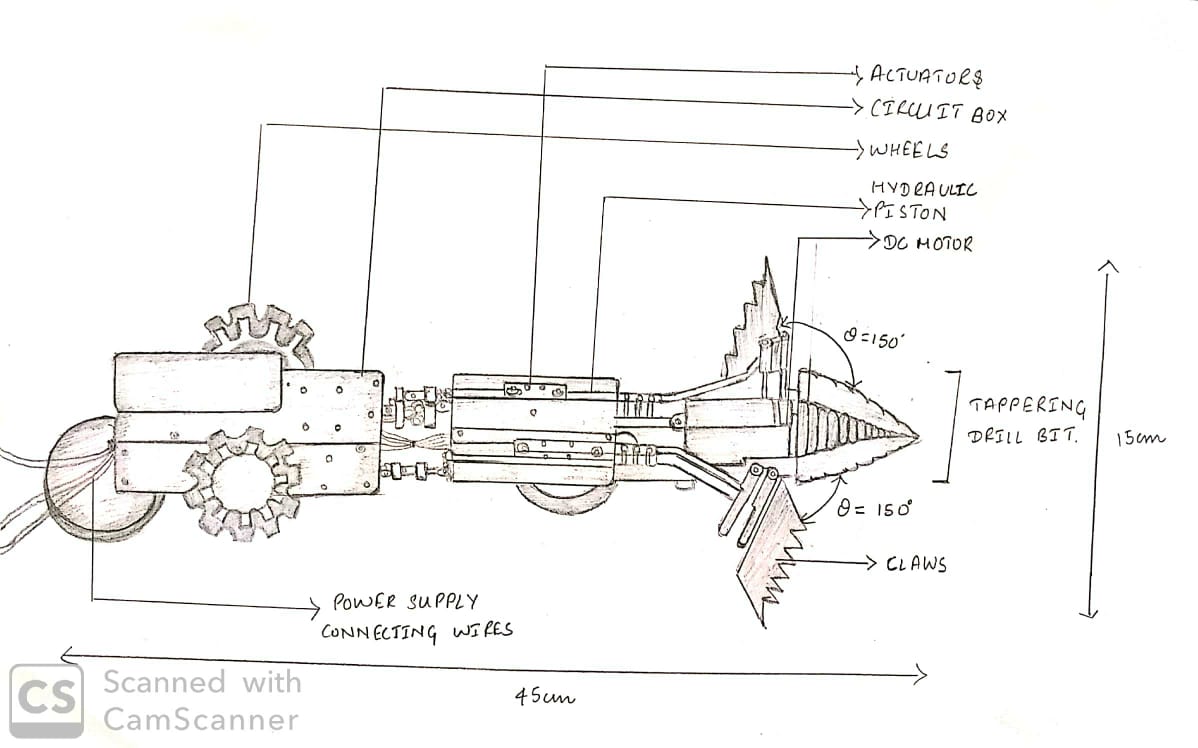 ACTUATORS
CIRCUIT BOX
WHEELS
HYDRAULIC
PISTON
DC MOTOR
θ=150°
TAPPERING
DRILL BIT.
15cm
θ= 150°
CLAWS
POWER SUPPLY
CONNECTING WIRES
45cm
CS
Scanned with
CamScanner